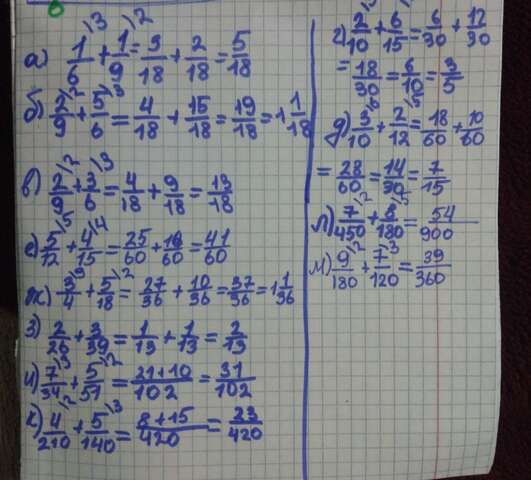 а) 1/6\3 + 1/9\2 = 3/18 + 2/18 = 5/18
б) 2/9\2 + 5/6\3 = 4/18 + 15/18 = 19/18 = 1 1/18
в) 2/9\2 + 3/6\3 = 4/18 + 9/18 = 13/18
е) 5/12\5 + 4/15\4 = 25/60 + 16/60 = 41/60
ж) 3/4\9 + 5/18\2 = 27/36 + 10/36 = 37/36 = 1 1/36
з) 2/26 + 3/39 = 1/13 + 1/13 = 2/13
и) 7/34\3 + 5/51\2 = 21+10/102 = 31/102
к) 4/210\2 + 5/140\3 = 8+15/420 = 23/420
г) 2/10 + 6/15 = 6/30 + 12/30
= 18/30 = 6/10 = 3/5
д) 3/10\6 + 2/12\5 = 18/60 + 10/60
= 28/60 = 14/30 = 7/15
л) 7/450\2 + 8/180\5 = 54/900
м) 9/180\2 + 7/120\3 = 39/360